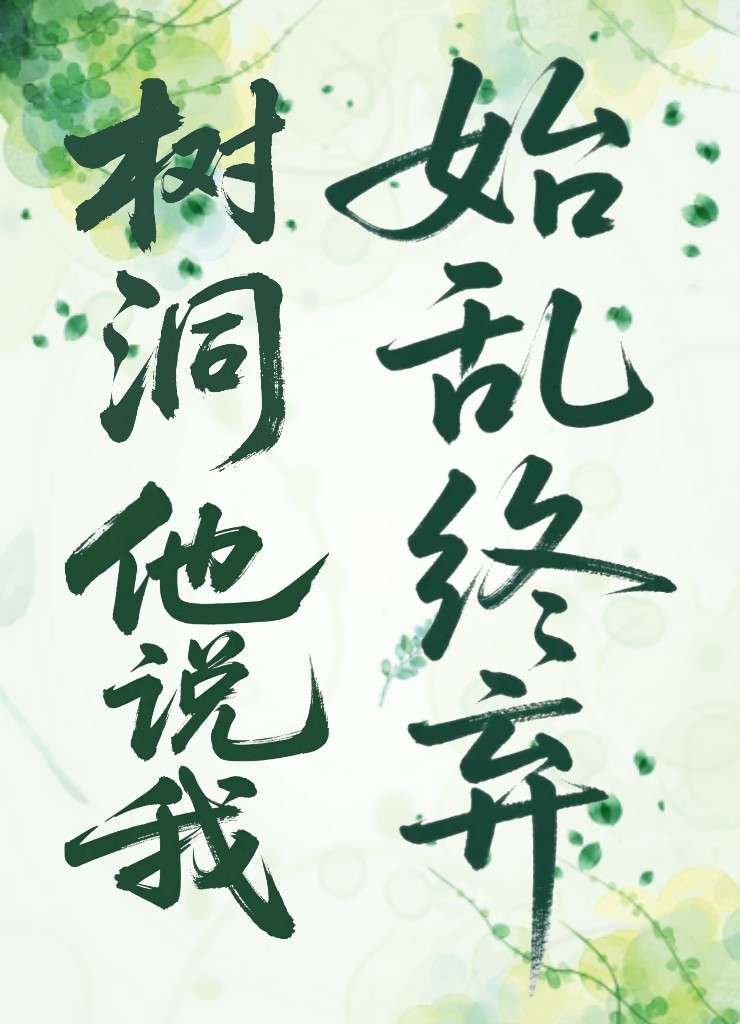 树洞他说我
始乱终弃